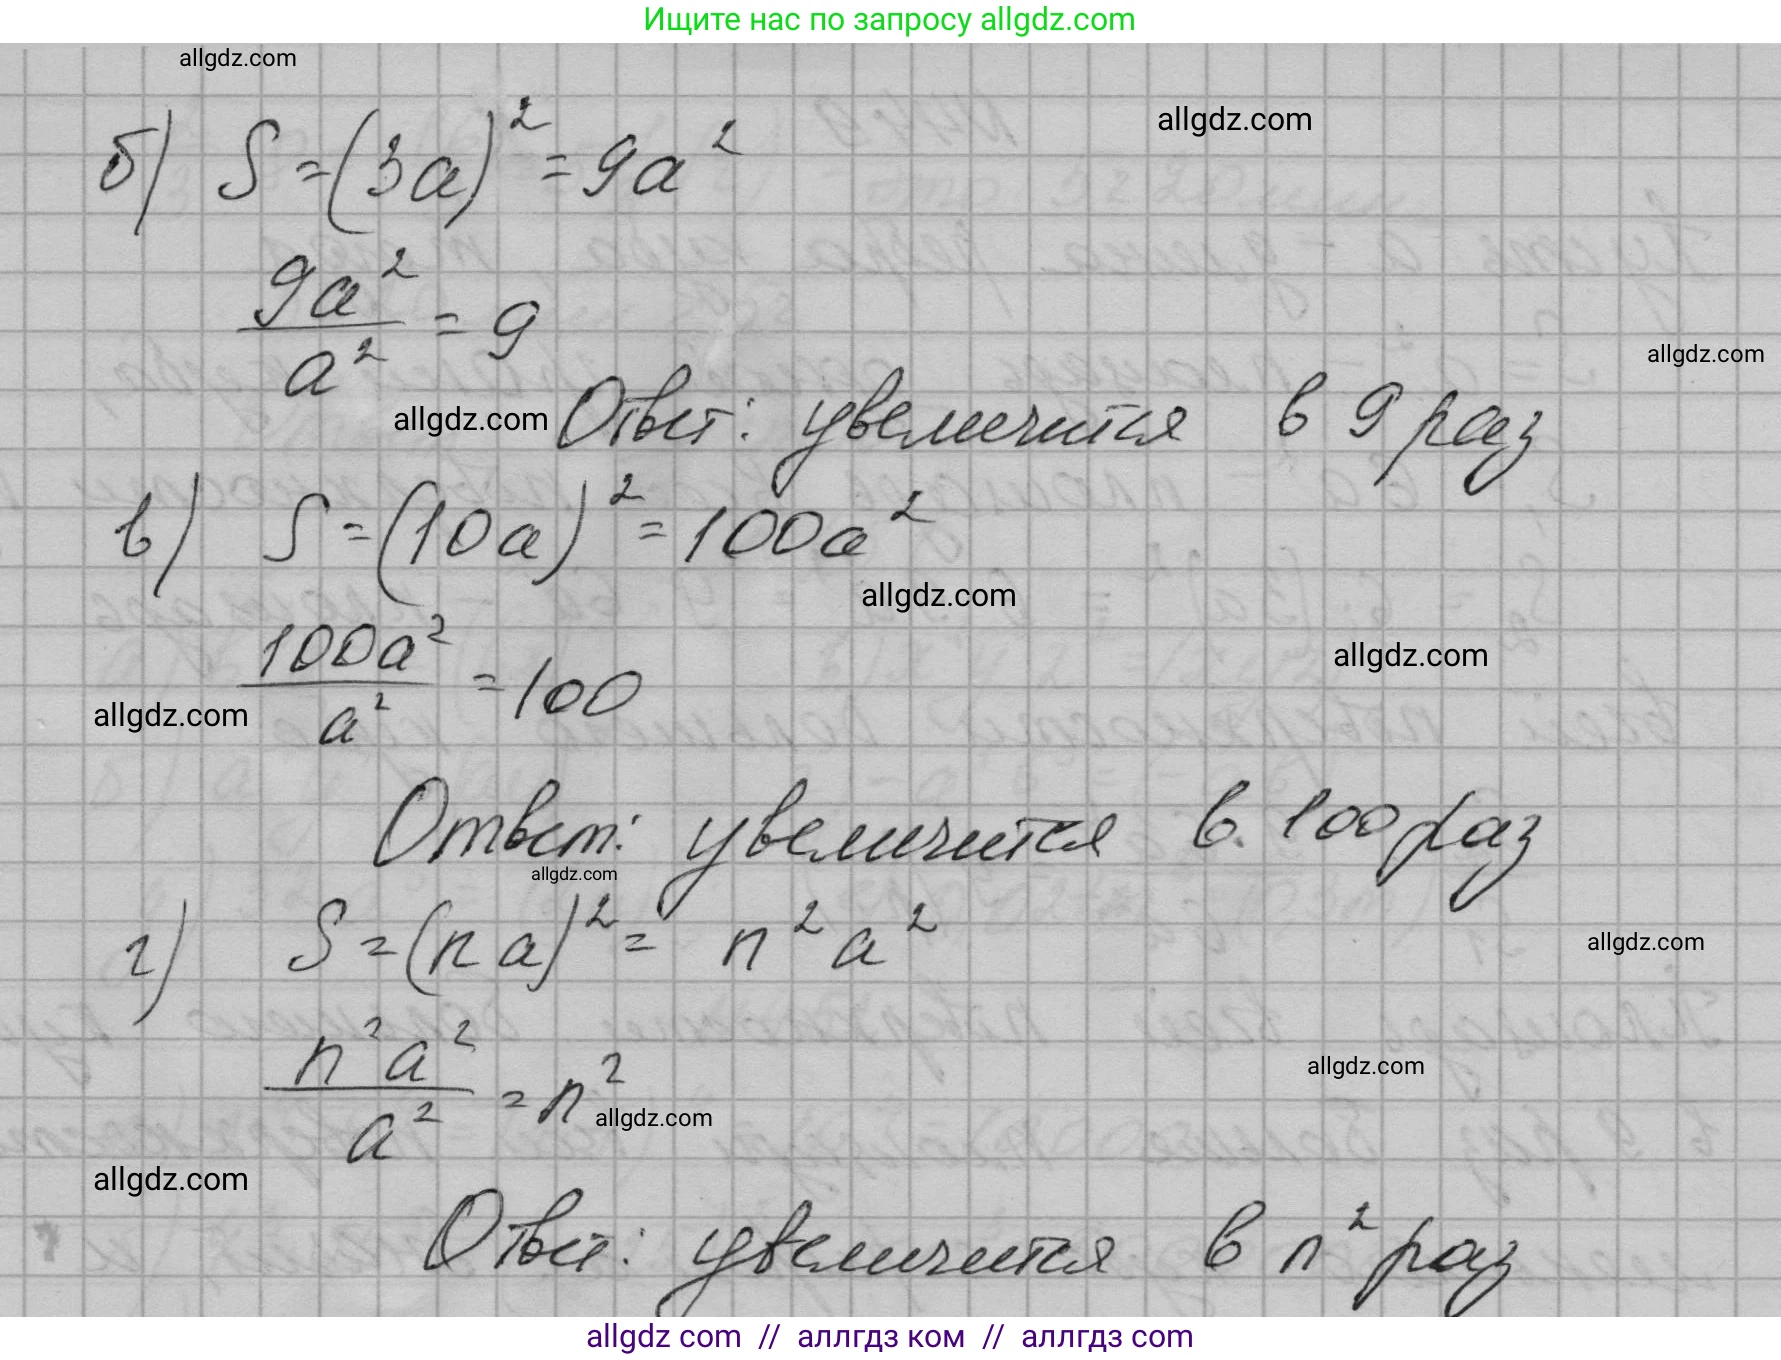 Ищите нас по запросу allgdz.com
allgdz.com
allgdz.com
б) S = (3a)² = 9a²
9a²
/ a² = 9
allgdz.com
allgdz.com
Ответ: увеличится в 9 раз
в) S = (10a)² = 100a²
allgdz.com
allgdz.com
100a²
/ a² = 100
allgdz.com
Ответ: увеличится в 100 раз
allgdz.com
г) S = (na)² = n²a²
allgdz.com
n²a²
/ a² = n²
allgdz.com
allgdz.com
allgdz.com
Ответ: увеличится в n² раз
allgdz com // аллгдз ком // аллгдз com